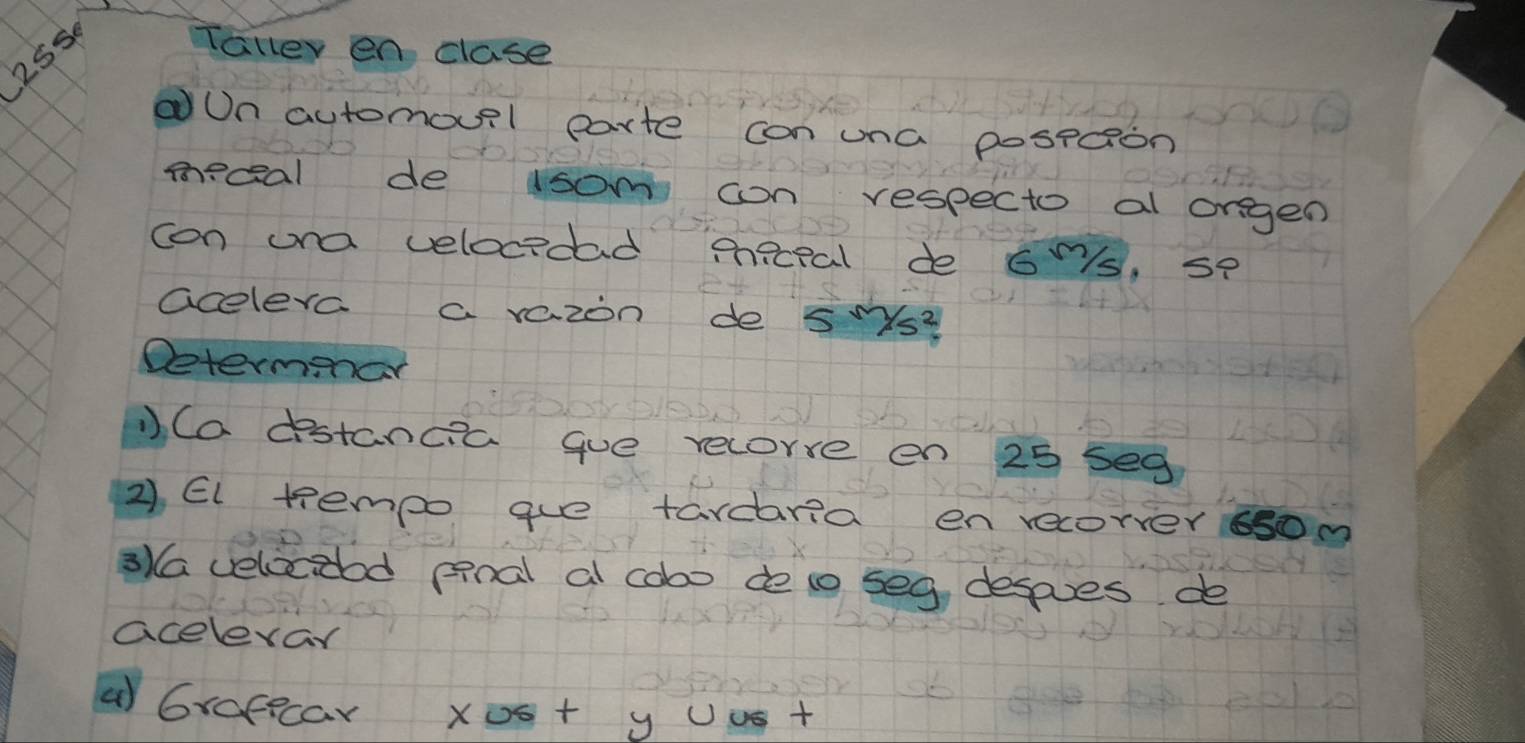 255
Taller en clase
a) Un automovil parte con una posición
inicial de 150m con respecto al origen
con una velocidad inicial de 6 m/s, si
acelera a razón de 5 m/s².
Determinar
1) La distancia que recorre en 25 seg
2) El tiempo que tardaria en recorrer 650 m
3) La velocidad final al cabo de 10 seg despues de
acelerar
4) Graficar x vs t y v vs t